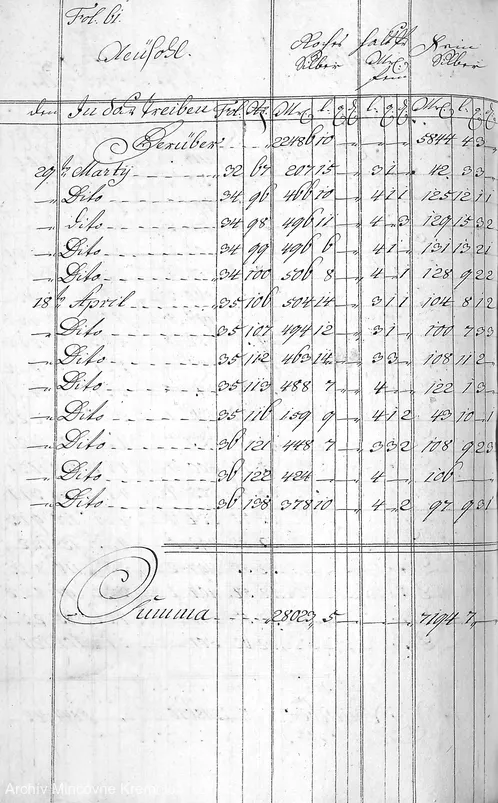 Fol. 61.
Neüsohl.
Roches halt pr Fein
Silber Mrc Silber
fein
den In das treiben Fol. No Mrc l. q d l. q d Mrc l. q d
Herüber 22486 10 — — — — 5844 4 3 —
29 n Marty 32 67 207 15 — 3 1 — 42 3 3 —
— Dito 34 96 466 10 — 4 1 1 125 12 1 1
— dito 34 98 496 11 — 4 — 3 129 15 3 2
— Dito 34 99 496 6 — 4 1 — 131 13 2 1
— Dito 34 100 506 8 — 4 — 1 128 9 2 2
18 n April 35 106 504 14 — 3 1 1 104 8 1 2
— Dito 35 107 494 12 — 3 1 — 100 7 3 3
— Dito 35 112 463 14 — 3 3 — 108 11 2 —
— Dito 35 113 488 7 — 4 — 122 1 3 —
— Dito 35 116 159 9 — 4 1 2 43 10 — 1
— Dito 36 121 448 7 — 3 3 2 108 9 2 3
— Dito 36 122 424 — — 4 — 106 —
— Dito 36 138 378 10 — 4 — 2 97 9 3 1
Summa 28023 5 — 7194 7
Archiv Mincovne Kremnica